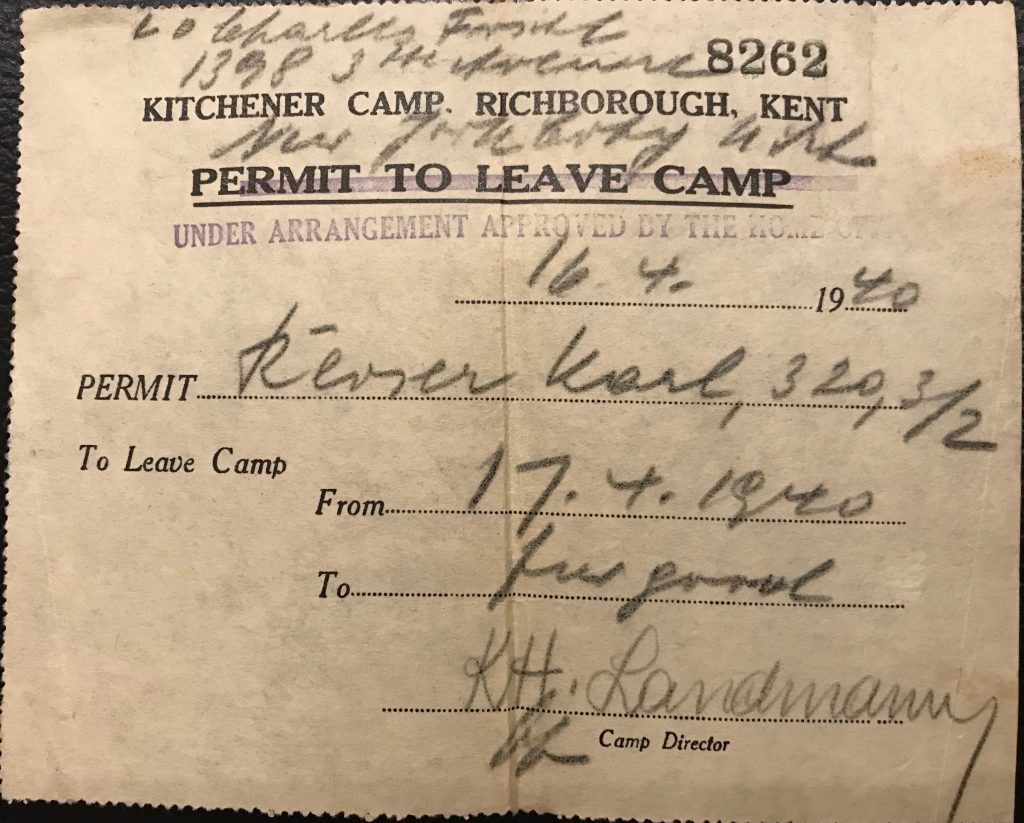 c/o Charles
1398 3rd Avenue 8262
KITCHENER CAMP. RICHBOROUGH, KENT
New York City U.S.A.
PERMIT TO LEAVE CAMP
UNDER ARRANGEMENT APPROVED BY THE HOME
16. 4. 1940
PERMIT Karl, 320, 3/2
To Leave Camp
From 17. 4. 1940
To for good
KH. Landmann
Camp Director